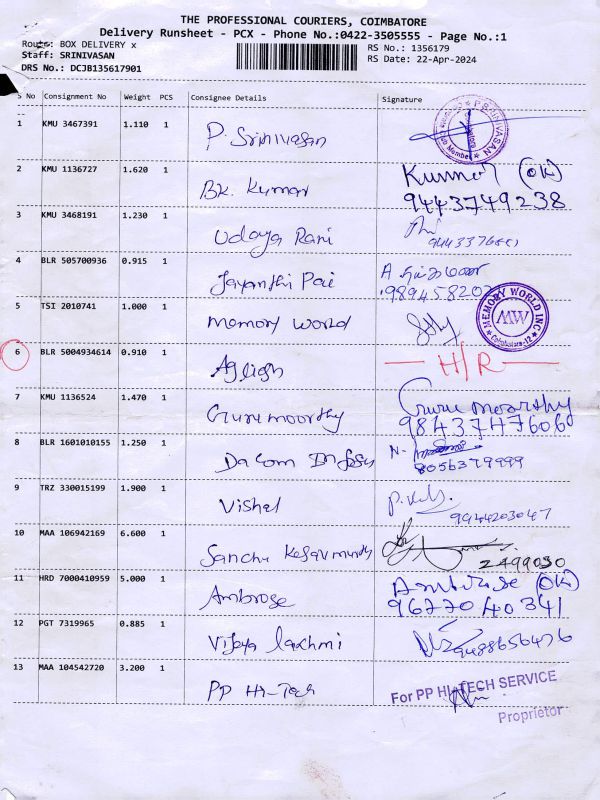 THE PROFESSIONAL COURIERS, COIMBATORE
Delivery Runsheet - PCX - Phone No.:0422-3505555 - Page No.:1
Route: BOX DELIVERY x RS No.: 1356179
Staff: SRINIVASAN RS Date: 22-Apr-2024
DRS No.: DCJB135617901
S No Consignment No Weight PCS Consignee Details Signature
1 KMU 3467391 1.110 1 P. Srinivasan
P.SRINIVASAN
2 KMU 1136727 1.620 1 BK. Kumar Kumar (OK)
9443749238
3 KMU 3468191 1.230 1 Udaya Rani
4 BLR 505700936 0.915 1 Jayanthi Pai A
5 TSI 2010741 1.000 1 Memory World
MEMORY WORLD INC. MW Coimbatore-12
6 BLR 5004934614 0.910 1 H/R
7 KMU 1136524 1.470 1 Gurumoorthy Gurumoorthy
9843747606
8 BLR 1601010155 1.250 1 Dacom Infosys N-
8056379999
9 TRZ 330015199 1.900 1 Vishal
9944203047
10 MAA 106942169 6.600 1 Sanchu Kesavmurthy
2499030
11 HRD 7000410959 5.000 1 Ambrose Ambrose (OK)
9677040341
12 PGT 7319965 0.885 1 Vijaya laxhmi
9488656476
13 MAA 104542720 3.200 1 PP Hi-Tech
For PP HI-TECH SERVICE
Proprietor